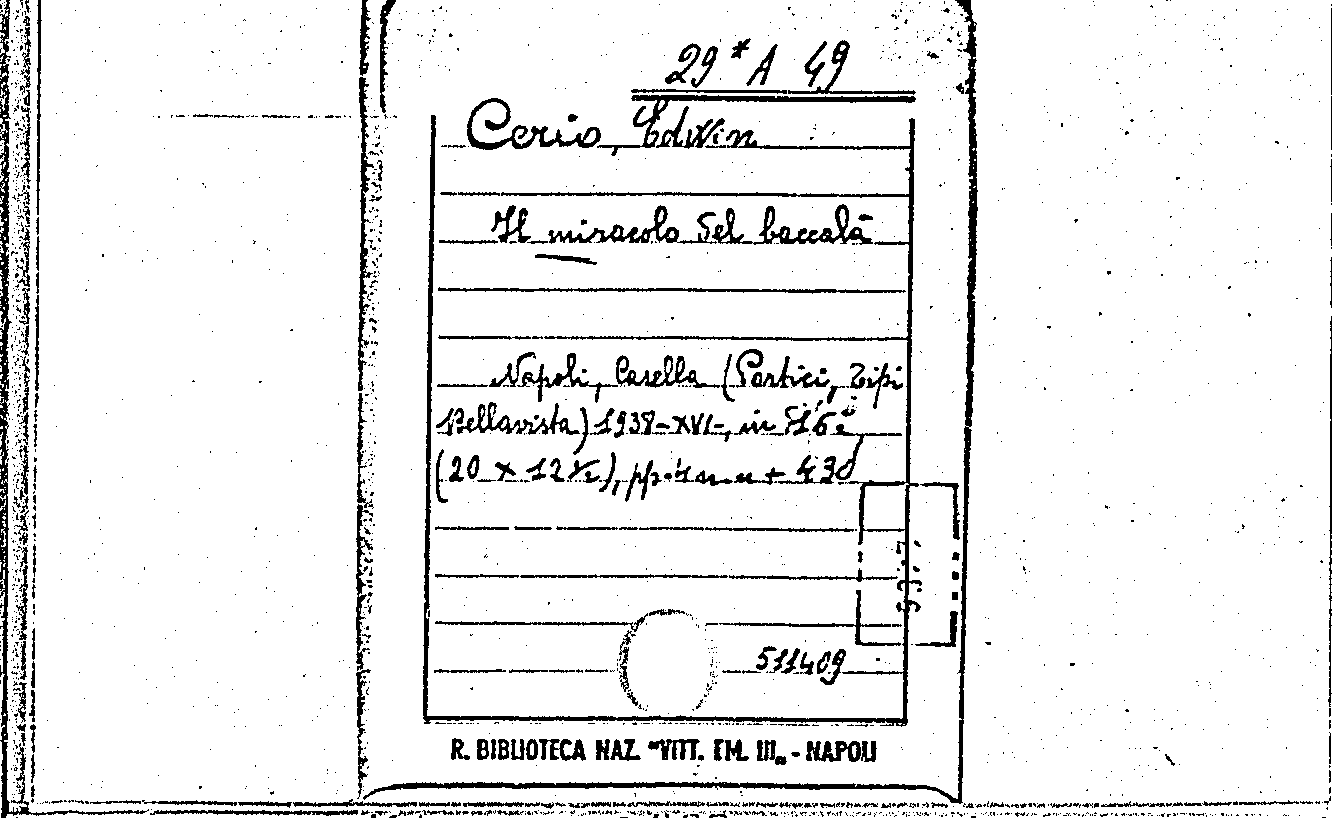 29* A 49
Cerio, Edwin
Il miracolo del baccalà
Napoli, Casella (Portici, Tipi
Bellavista) 1938-XVI-, in 16°
(20 x 12 ½), pp. 4 n. n +
511409
R. BIBLIOTECA NAZ. "VITT. EM. III„ - NAPOLI